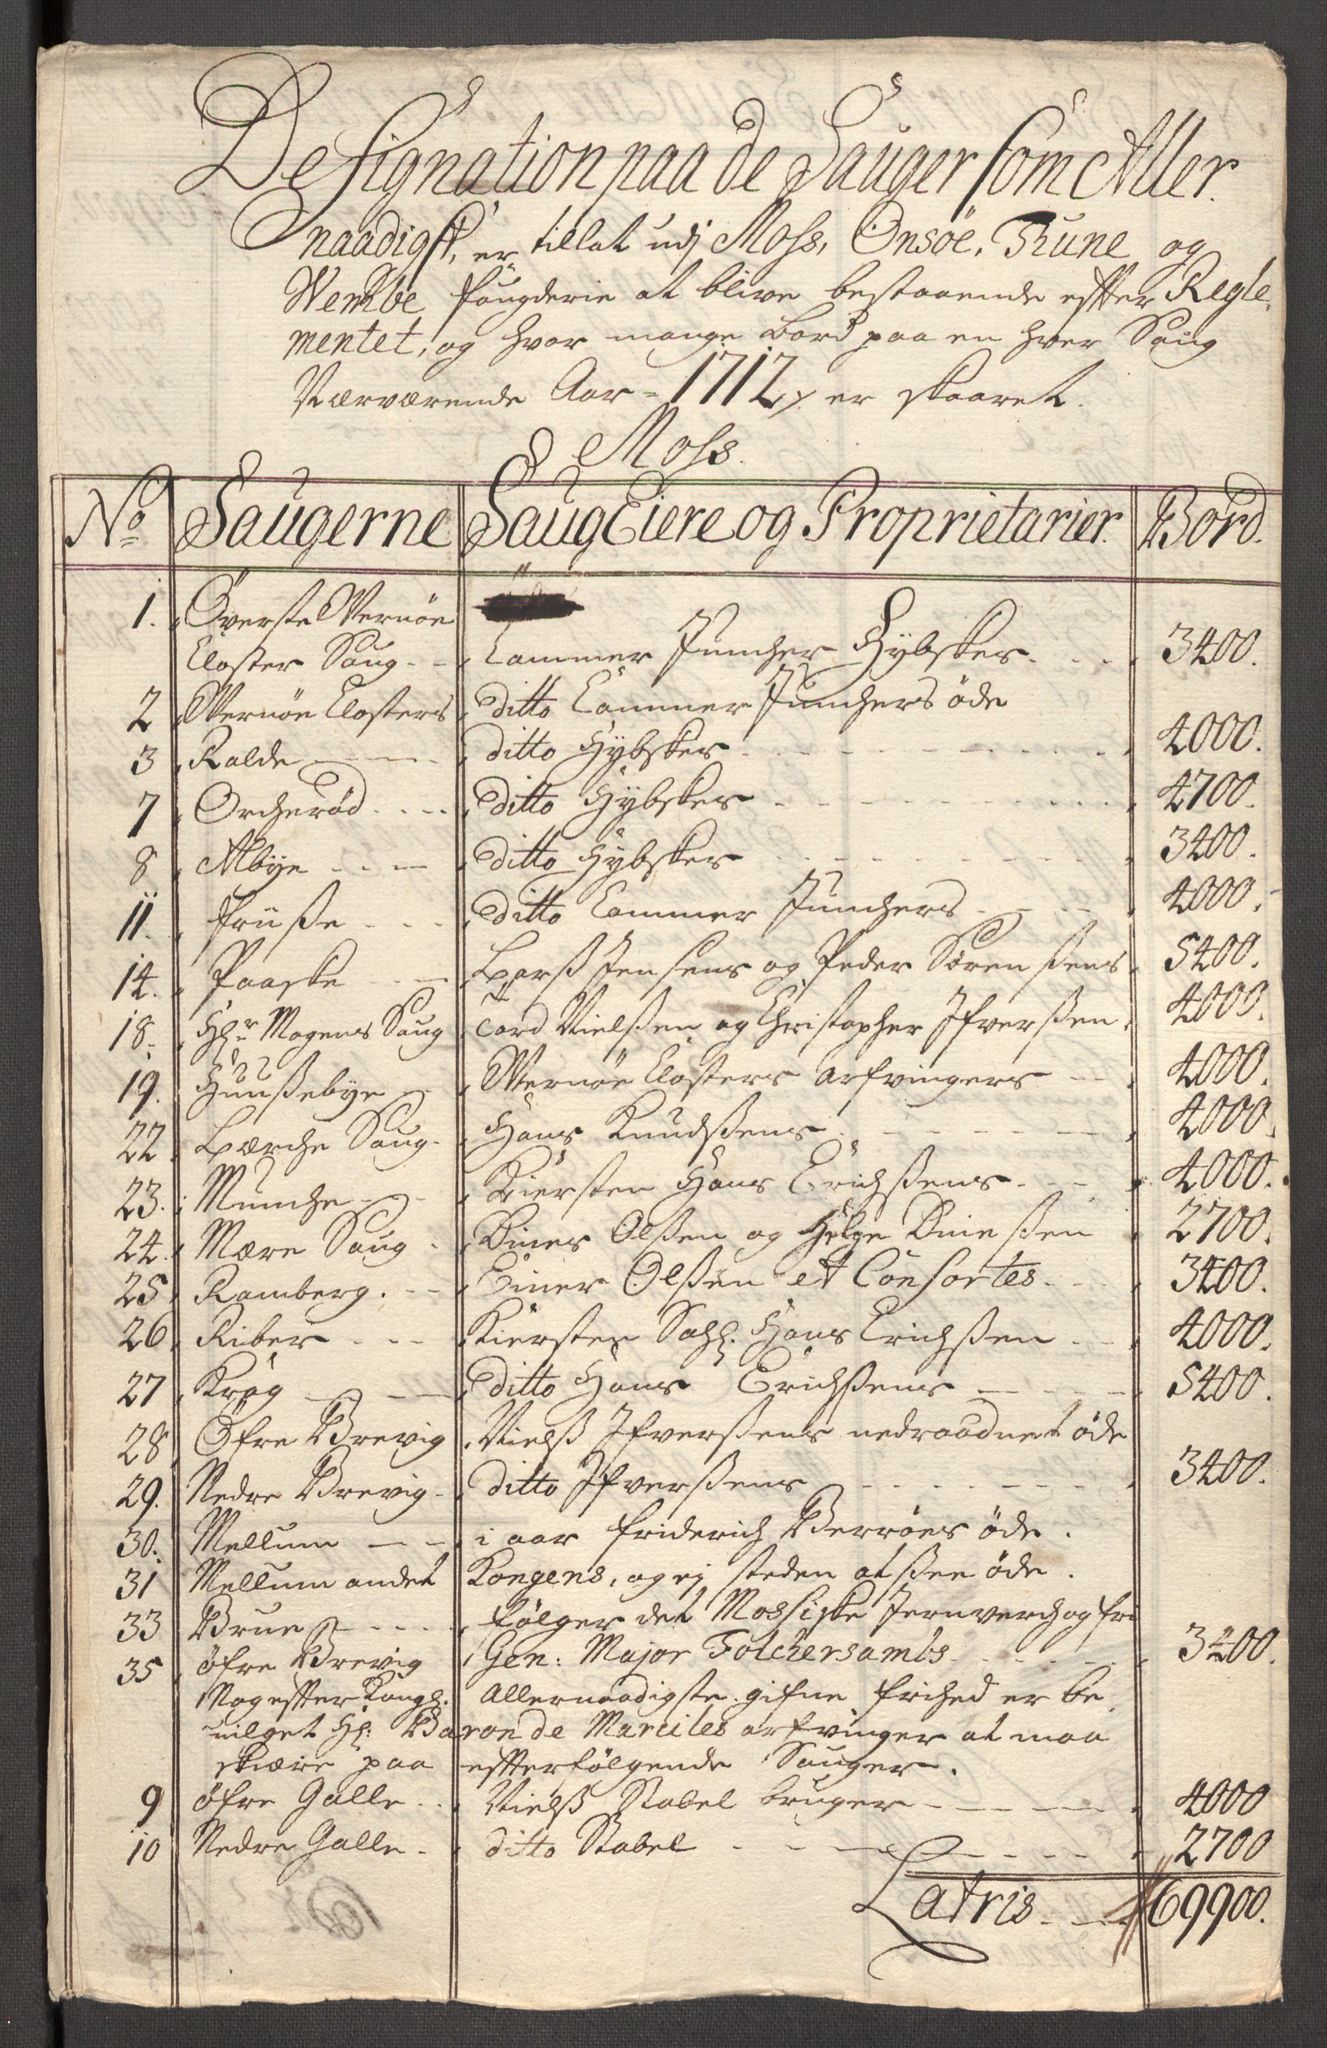 Designation paa de Sauger som Aller
naadigst, er tillat udj Moss, Onsøe, Tune og
Wembe fougderie at blive bestaaende effter Regle,
mentet, og hvor mange Bord paa en hver Saug
Nærværende Aar = 1712 / er skaaret.
Moss.
No Saugerne SaugEiere og Proprietarier. Bord.
1. Øverste Wernøe
Closter Saug - - Cammer Juncher Hybskes . . . 3400.
2 Wernøe Closters ditto Cammer Junchers øde
3 Ralde - - - ditto Hybskes - - - 4000.
7 Orcherød . . . . ditto Hybskes - - - 4700.
8 Albye . . . - ditto Hybskes - - - 3400.
11. Früsse . . . ditto Cammer Junchers - - - 4000.
14. Paaske - - - Larss Jensens og Peder Sørenssens 5400.
18. Hr. Mogens Saug Tord Nielssen og Christopher Ifverssen 4000.
19. Huussebye - Wernøe Closters arfvingers - - 4000.
22 Lærche Saug - Hans Knudssens - - - 4000.
23. Munche - - Kiersten Hans Erichssens - - - 4000.
24. Mære Saug - Biner Olssen og Helge Biinessen 2700.
25 Ramberg. - - Einer Olssen et Consortes - - - 3400.
26 Riber - - - Kiersten Sahl. Hans Erichssen - - 4000.
27 Krog - - - ditto Hans Erichssens - - - 5400.
28 Øfre Brevig Nielss Ifverssens nedraadnet øde
29. Nedre Brevig - ditto Ifverssens - - - 3400.
30. Mellum - - - i aar Friderich Berrøes øde.
31 Mellum andet Kongens, og ej steden at see øde.
33 Brue - - - følger det Mossiske Jernverch og fri
35 øfre Brevig Gen: Major Tolchersambs - - - 3400.
Nogeffter Kongl. Allernaadigste gifne frihed er be
vilget Hr. Baron de Marcites arfvinger at maa
skiære paa effterfølgende Sauger.
9 øfre Galle . . Nielss Stabel bruger - - - 4000
10 Nedre Galle - ditto Stabel - - - 2700
Latris - - - 69900.